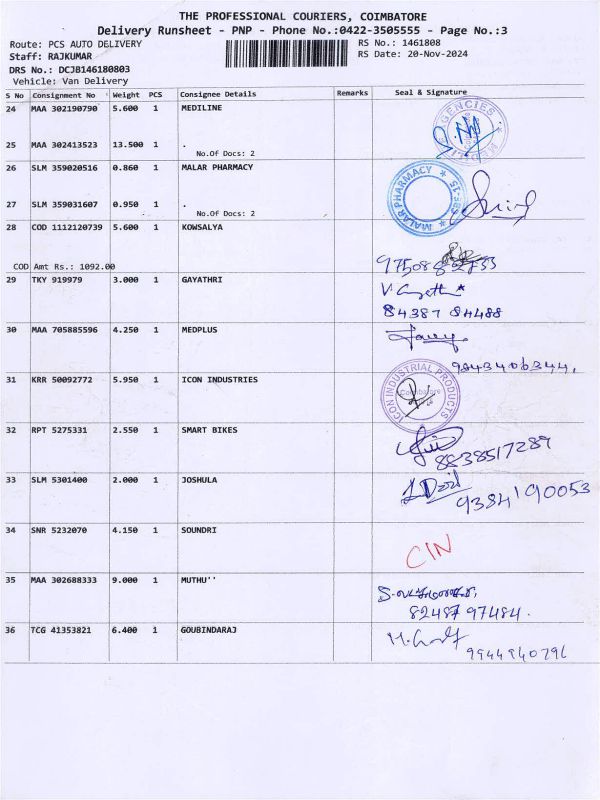 THE PROFESSIONAL COURIERS, COIMBATORE
Delivery Runsheet - PNP - Phone No.:0422-3505555 - Page No.:3
Route: PCS AUTO DELIVERY
RS No.: 1461808
Staff: RAJKUMAR
RS Date: 20-Nov-2024
DRS No.: DCJB146180803
Vehicle: Van Delivery
S No Consignment No Weight PCS Consignee Details Remarks Seal & Signature
24 MAA 302190790 5.600 1 MEDILINE
AGENCIES
25 MAA 302413523 13.500 1 .
No.Of Docs: 2
26 SLM 359020516 0.860 1 MALAR PHARMACY
MALAR PHARMACY
27 SLM 359031607 0.950 1 .
No.Of Docs: 2
28 COD 1112120739 5.600 1 KOWSALYA
COD Amt Rs.: 1092.00
29 TKY 919979 3.000 1 GAYATHRI
84387 84488
30 MAA 705885596 4.250 1 MEDPLUS
9843406344,
31 KRR 50092772 5.950 1 ICON INDUSTRIES
ICON INDUSTRIAL PRODUCTS
Coimbatore
32 RPT 5275331 2.550 1 SMART BIKES
8838517289
33 SLM 5301400 2.000 1 JOSHULA
9384190053
34 SNR 5232070 4.150 1 SOUNDRI
CIN
35 MAA 302688333 9.000 1 MUTHU''
82487 97484.
36 TCG 41353821 6.400 1 GOUBINDARAJ
9944940791